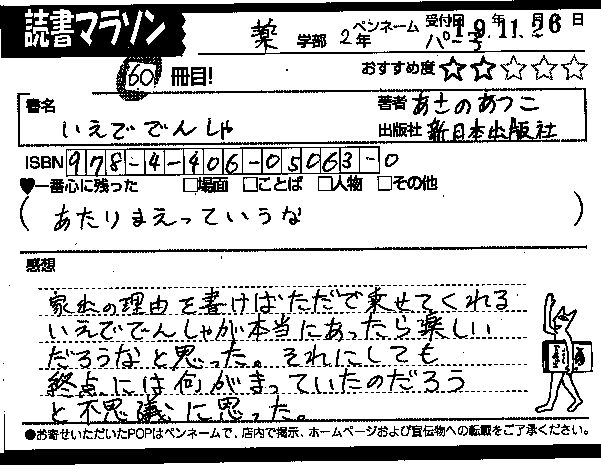 読書マラソン
薬 学部 2年 ペンネーム パー子 受付日 19年11月26日
60 冊目! おすすめ度 ☆☆☆☆☆
書名 いえででんしゃ
著者 あさのあつこ
出版社 新日本出版社
ISBN 978-4-406-05063-0
♥一番心に残った □場面 □ことば □人物 □その他
(あたりまえっていうな)
感想
家出の理由を書けばただで乗せてくれる
いえででんしゃが本当にあったら楽しい
だろうなと思った。それにしても
終点には何がまっていたのだろう
と不思議に思った。
●お寄せいただいたPOPはペンネームで、店内で掲示、ホームページおよび宣伝物への転載をご了承ください。